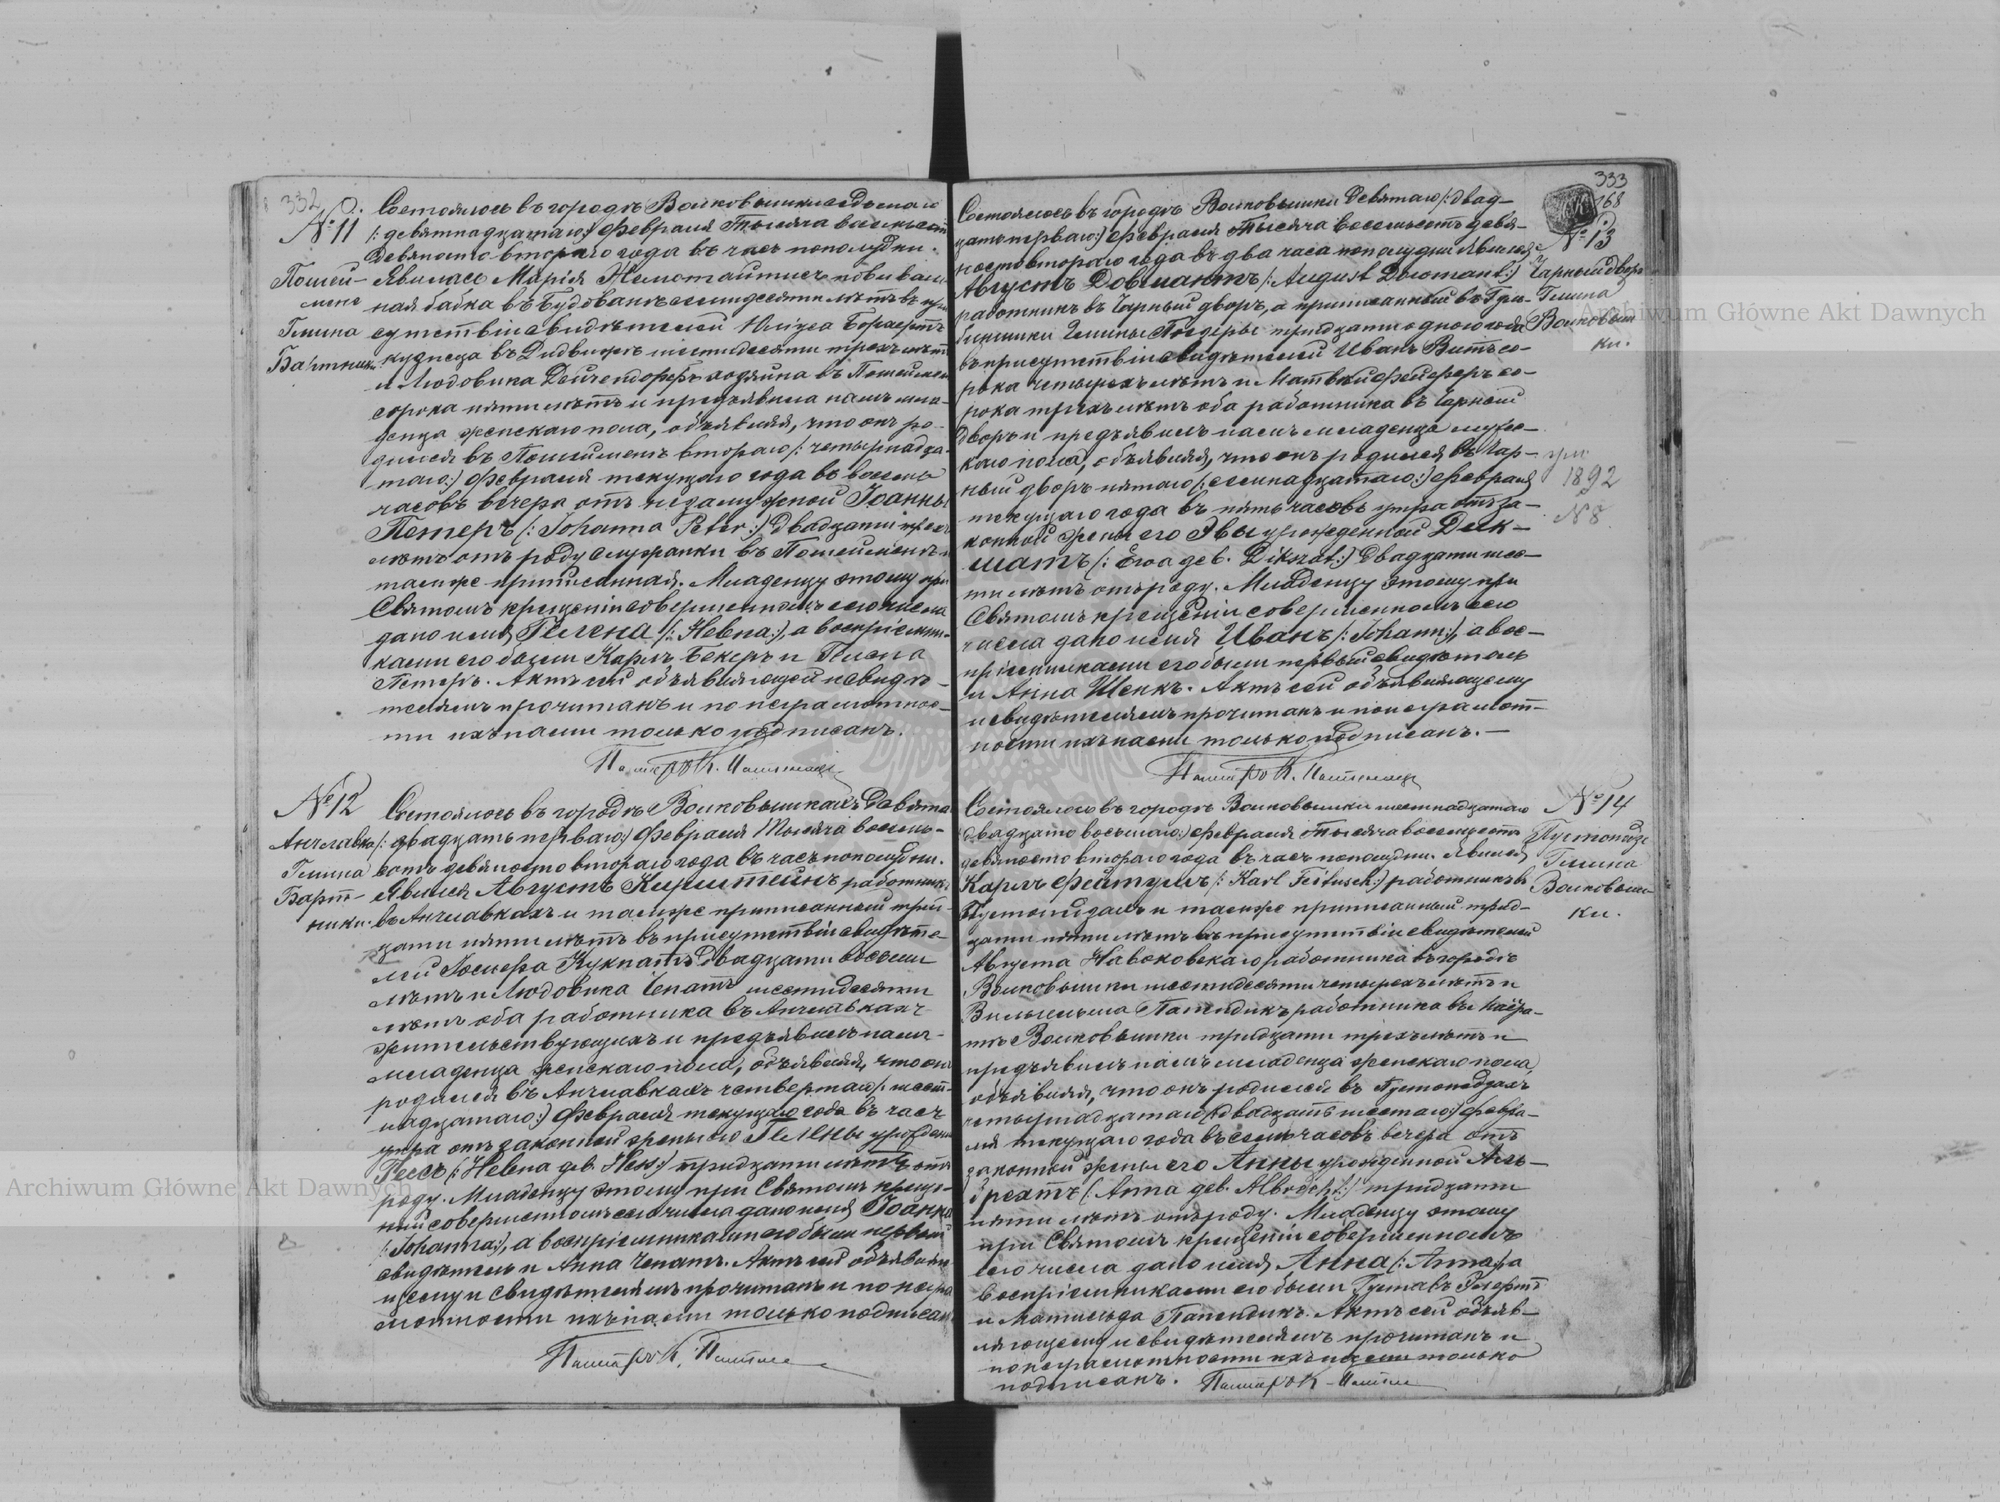 332
№ 11
Пошей-
мене
Гмина
Бартники
Состоялось въ городѣ Волковышки седьмаго
/: девятнадцатаго:/ февраля Тысяча восемьсотъ
девяносто втораго года въ часъ пополудни.
Явилась Марія повиваль-
ная бабка въ семидесяти лѣтъ въ при
сутствіи свидѣтелей
кузнеца въ шестидесяти трехъ лѣтъ
и Людовика хозяина въ
сорока пяти лѣтъ и предъявила намъ мла-
денца женскаго пола, объявляя, что онъ ро-
дился въ втораго /: четырнадца-
таго:/ февраля текущаго года въ восемь
часовъ вечера отъ незамужной Іоанны
Петеръ /: Johanna Peter:/ двадцати трехъ
лѣтъ отъ роду служанки въ
тамже приписанная. Младенцу этому при
Святомъ крещеніи совершенномъ сего числа
дано имя Гелена /: Helena:/, а воспріемни-
ками его были Карлъ Бекеръ и Гелена
Петеръ. Актъ сей объявляющей и свидѣ-
телямъ прочитанъ и по неграмотнос-
ти ихъ нами только подписанъ.
Пасторъ К.
№ 12
Анчлавка
Гмина
Барт-
ники.
Состоялось въ городѣ Волковышкахъ девята
/: двадцать перваго:/ февраля Тысяча восемь-
сотъ девяносто втораго года въ часъ пополудни.
Явился Августъ Кирштейнъ работникъ
въ Анчлавкахъ и тамже приписанный трид-
цати пяти лѣтъ въ присутствіи свидѣте-
лей двадцати восьми
лѣтъ и Людовика Чепатъ шестидесяти
лѣтъ оба работника въ Анчлавкахъ
жительствующихъ и предъявилъ намъ
младенца женскаго пола, объявляя, что онъ
родился въ Анчлавкахъ четвертаго /: шест-
надцатаго:/ февраля текущаго года въ часъ
утра отъ законной жены его Гелены урожден
Гессъ /: Helena geb. Hess:/ тридцати лѣтъ отъ
роду. Младенцу этому при Святомъ креще-
ніи совершенномъ сего числа дано имя Іоанна
/: Johanna:/, а воспріемниками его были первый
свидѣтель и Анна Чепатъ. Актъ сей объявляю
щему и свидѣтелямъ прочитанъ и по негра
мотности ихъ нами только подписанъ
Пасторъ К.
333
168
№ 13
Чарный дворъ
Гмина
Волковыш
ки.
1892
№ 8
Состоялось въ городѣ Волковышки девятаго /: двад-
цать перваго:/ февраля Тысяча восемьсотъ девя-
носто втораго года въ два часа пополудни. Явился
Августъ Довмантъ /: August Dowmant:/
работникъ въ Чарный дворъ, а приписанный въ
Гмины тридцати одного года
въ присутствіи свидѣтелей Иванъ со-
рока четырехъ лѣтъ и Матвѣй Фейферъ со-
рока трехъ лѣтъ оба работника въ Чарный
дворъ и предъявилъ намъ младенца мужс-
каго пола, объявляя, что онъ родился въ Чар-
ный дворъ пятаго /: семнадцатаго:/ февраля
текущаго года въ пять часовъ утра отъ за-
конной жены его Эвы урожденной Дик-
шатъ /: Ewa geb. Dikszat:/ двадцати шес-
ти лѣтъ отъ роду. Младенцу этому при
Святомъ крещеніи совершенномъ сего
числа дано имя Иванъ /: Johann:/, а вос-
пріемниками его были первый свидѣтель
и Анна Шенкъ. Актъ сей объявляющему
и свидѣтелямъ прочитанъ и по неграмот-
ности ихъ нами только подписанъ. —
Пасторъ К.
№ 14
Гмина
Волковыш-
ки.
Состоялось въ городѣ Волковышки шестнадцатаго
/: двадцать восьмаго:/ февраля Тысяча восемьсотъ
девяносто втораго года въ часъ пополудни. Явился
Карлъ Фейтушъ /: Karl Feitusch:/ работникъ въ
и тамже приписанный трид-
цати пяти лѣтъ въ присутствіи свидѣтелей
Августа работника въ городѣ
Волковышки шестидесяти четырехъ лѣтъ и
Вильгельма Папендикъ работника въ
Волковышки тридцати трехъ лѣтъ и
предъявилъ намъ младенца женскаго пола,
объявляя, что онъ родился въ
четырнадцатаго /: двадцать шестаго:/ февра-
ля текущаго года въ семь часовъ вечера отъ
законной жены его Анны урожденной Аль-
брехтъ /: Anna geb. Albrecht:/ тридцати
пяти лѣтъ отъ роду. Младенцу этому
при Святомъ крещеніи совершенномъ
сего числа дано имя Анна /: Anna:/ а
воспріемниками его были Густавъ
и Матильда Папендикъ. Актъ сей объяв-
ляющему и свидѣтелямъ прочитанъ и
по неграмотности ихъ нами только
подписанъ. Пасторъ К.
Archiwum Główne Akt Dawnych
Archiwum Główne Akt Dawnych